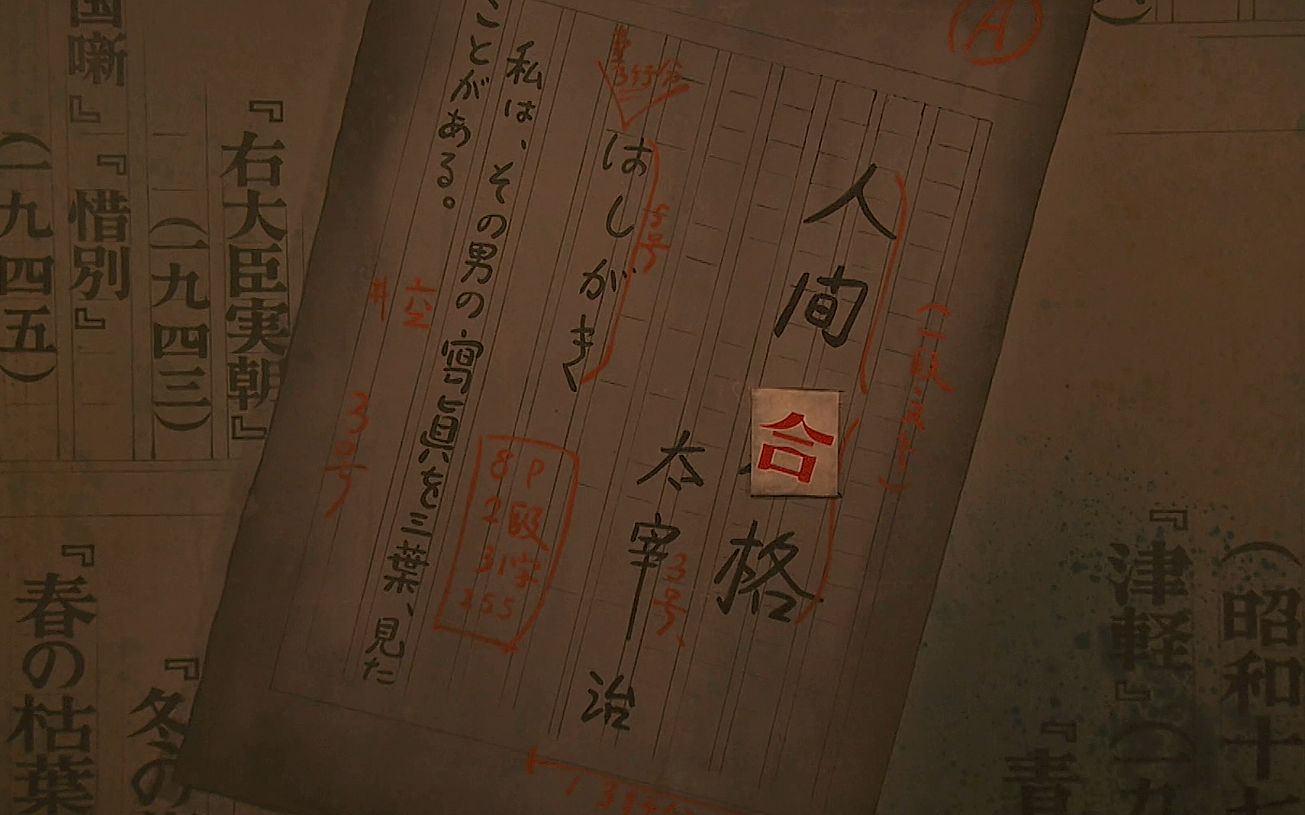 人間合格
太宰治
はしがき
私は、その男の写真を三葉、見た
ことがある。
A
5号
3号、
3号
P
段
字
8
2
31
255
(昭和十七
『津軽』(一九
『青
『右大臣実朝』
(一九四三)
国噺』『惜別』
(一九四五)
『冬の
『春の枯葉